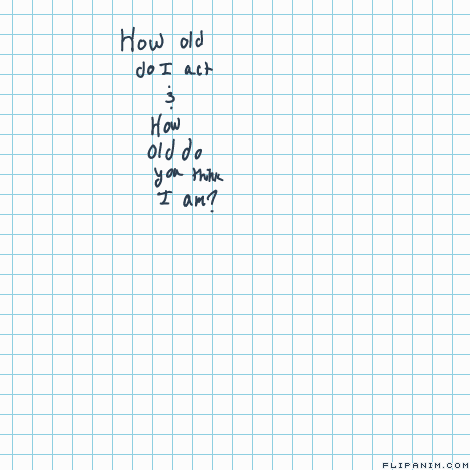 How old
do I act
&
How
old do
you think
I am?
FLIPANIM.COM